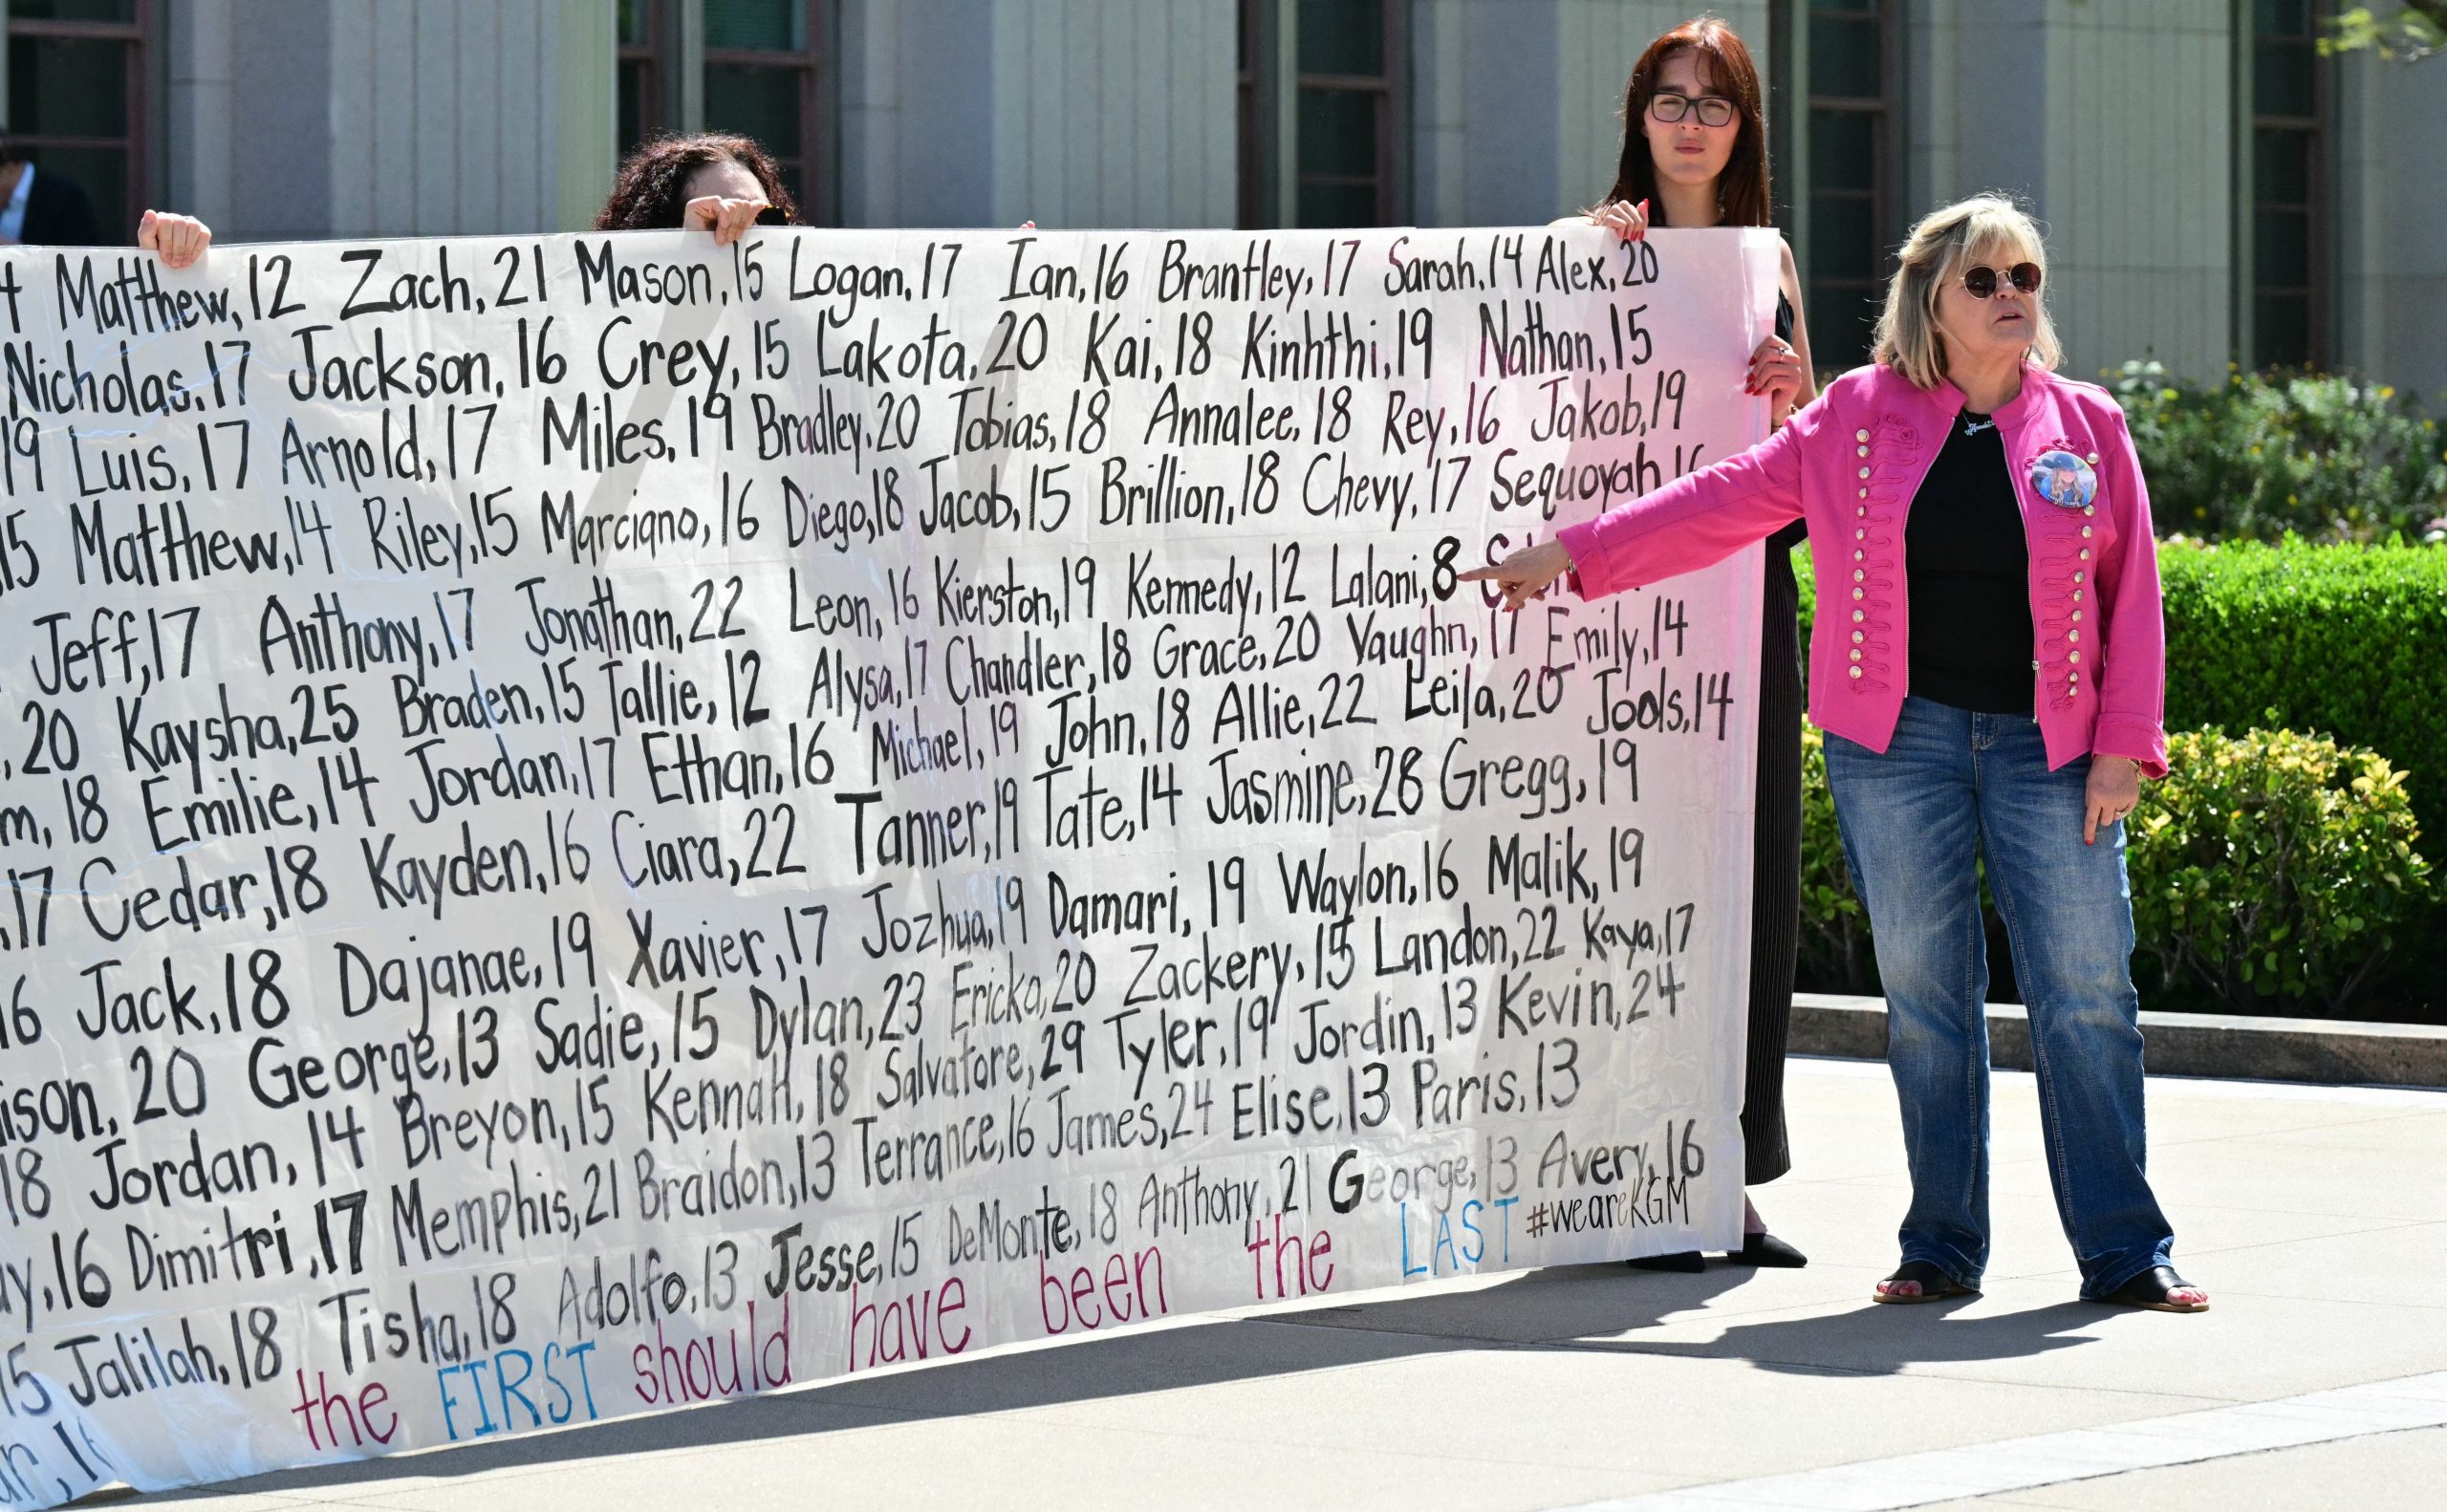 4 Matthew, 12 Zach, 21 Mason, 15 Logan, 17 Ian, 16 Brantley, 17 Sarah, 14 Alex, 20
Nicholas, 17 Jackson, 16 Crey, 15 Lakota, 20 Kai, 18 Kinhthi, 19 Nathan, 15
19 Luis, 17 Arnold, 17 Miles, 19 Bradley, 20 Tobias, 18 Annalee, 18 Rey, 16 Jakob, 19
15 Matthew, 14 Riley, 15 Marciano, 16 Diego, 18 Jacob, 15 Brillion, 18 Chevy, 17 Sequoyah 16
Jeff, 17 Anthony, 17 Jonathan, 22 Leon, 16 Kierston, 19 Kennedy, 12 Lalani, 8
, 20 Kaysha, 25 Braden, 15 Tallie, 12 Alysa, 17 Chandler, 18 Grace, 20 Vaughn, 17 Emily, 14
m, 18 Emilie, 14 Jordan, 17 Ethan, 16 Michael, 19 John, 18 Allie, 22 Leila, 20 Jools, 14
, 17 Cedar, 18 Kayden, 16 Ciara, 22 Tanner, 19 Tate, 14 Jasmine, 28 Gregg, 19
16 Jack, 18 Dajanae, 19 Xavier, 17 Jozhua, 19 Damari, 19 Waylon, 16 Malik, 19
ison, 20 George, 13 Sadie, 15 Dylan, 23 Ericka, 20 Zackery, 15 Landon, 22 Kaya, 17
18 Jordan, 14 Breyon, 15 Kennah, 18 Salvatore, 29 Tyler, 19 Jordin, 13 Kevin, 24
y, 16 Dimitri, 17 Memphis, 21 Braidon, 13 Terrance, 16 James, 24 Elise, 13 Paris, 13
15 Jalilah, 18 Tisha, 18 Adolfo, 13 Jesse, 15 DeMonte, 18 Anthony, 21 George, 13 Avery, 16
the FIRST should have been the LAST #weareKGM